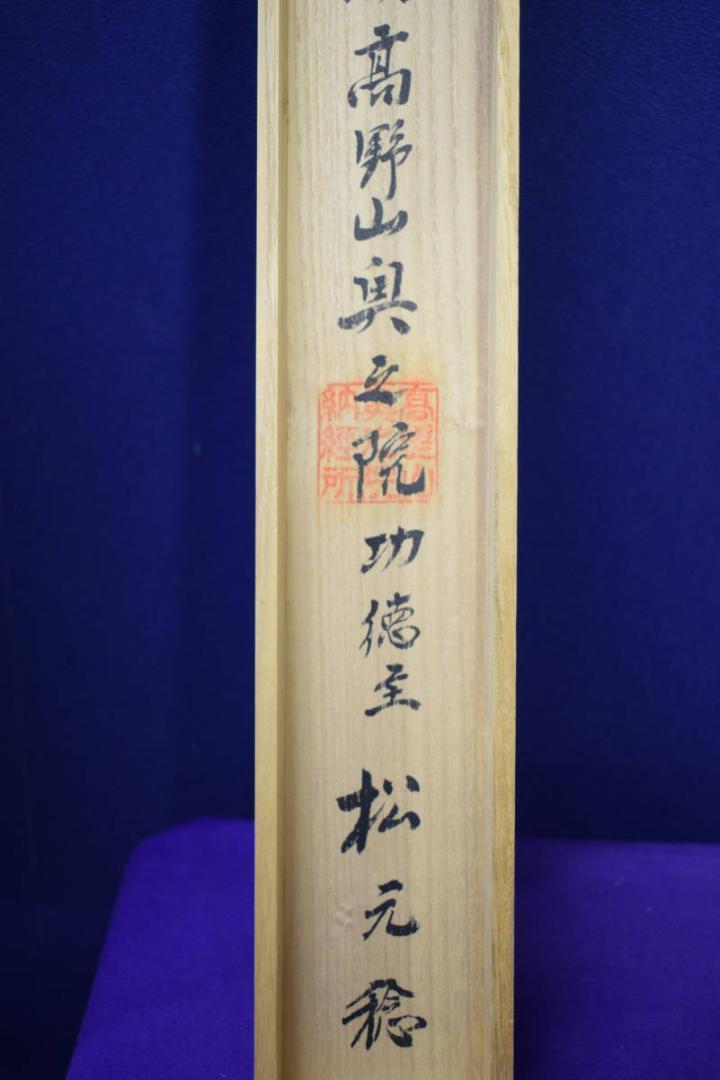 髙野山奥之院功徳主 松元稔
高野山
奥之院
納經所